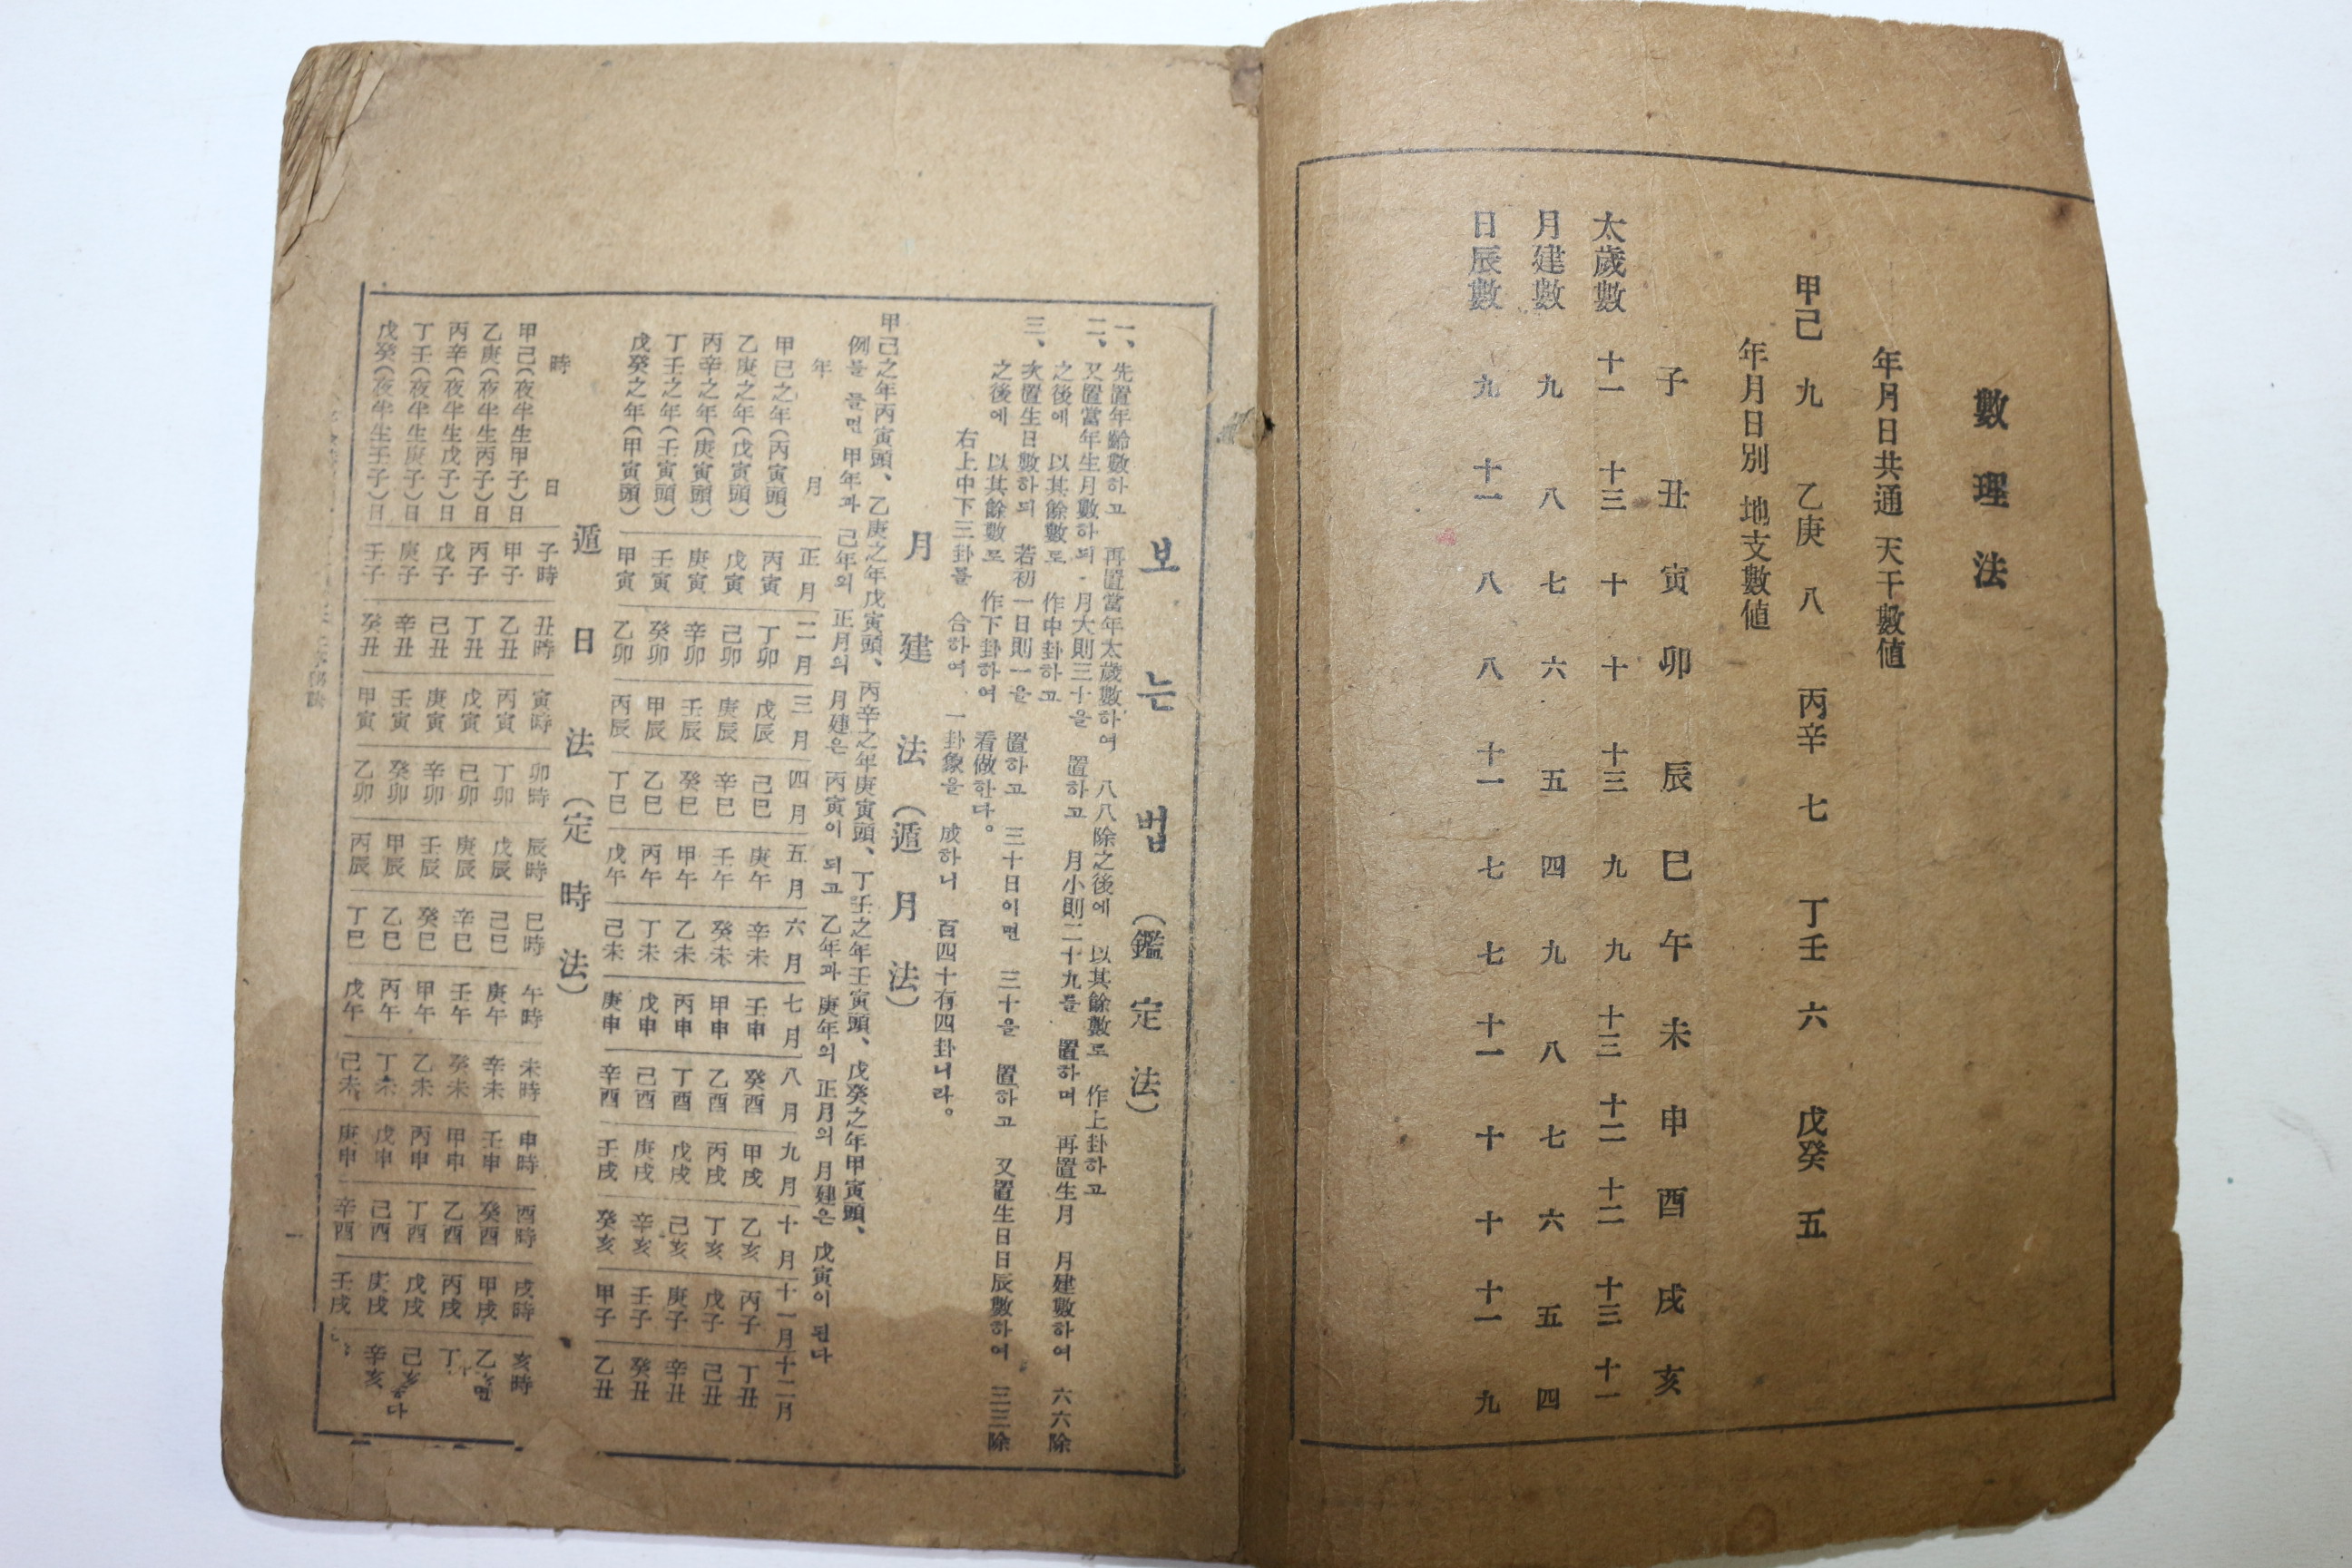 數理法
年月日共通 天干數値
甲己 九 乙庚 八 丙辛 七 丁壬 六 戊癸 五
年月日別 地支數値
子 丑 寅 卯 辰 巳 午 未 申 酉 戌 亥
太歲數 十一 十三 十 十 十三 九 九 十三 十二 十二 十三 十一
月建數 九 八 七 六 五 四 九 八 七 六 五 四
日辰數 九 十一 八 八 十一 七 七 十一 十 十 十一 九
보는법(鑑定法)
一、先置年齡數하고 再置當年太歲數하여 八八除之後에 以其餘數로 作上卦하고
二、又置當年生月數하되 月大則三十을 置하고 月小則二十九를 置하며 再置生月 月建數하여 六六除
之後에 以其餘數로 作中卦하고
三、次置生日數하되 若初一日則一을 置하고 三十日이면 三十을 置하고 又置生日日辰數하여 三三除
之後에 以其餘數로 作下卦하여 看做한다。
右上中下三卦를 合하여 一卦象을 成하니 百四十有四卦니라。
月建法(遁月法)
甲己之年丙寅頭、乙庚之年戊寅頭、丙辛之年庚寅頭、丁壬之年壬寅頭、戊癸之年甲寅頭、
例를 들면 甲年과 己年의 正月의 月建은 丙寅이 되고 乙年과 庚年의 正月의 月建은 戊寅이 된다
年 月 正月 二月 三月 四月 五月 六月 七月 八月 九月 十月 十一月 十二月
甲己之年(丙寅頭) 丙寅 丁卯 戊辰 己巳 庚午 辛未 壬申 癸酉 甲戌 乙亥 丙子 丁丑
乙庚之年(戊寅頭) 戊寅 己卯 庚辰 辛巳 壬午 癸未 甲申 乙酉 丙戌 丁亥 戊子 己丑
丙辛之年(庚寅頭) 庚寅 辛卯 壬辰 癸巳 甲午 乙未 丙申 丁酉 戊戌 己亥 庚子 辛丑
丁壬之年(壬寅頭) 壬寅 癸卯 甲辰 乙巳 丙午 丁未 戊申 己酉 庚戌 辛亥 壬子 癸丑
戊癸之年(甲寅頭) 甲寅 乙卯 丙辰 丁巳 戊午 己未 庚申 辛酉 壬戌 癸亥 甲子 乙丑
遁日法(定時法)
時 日 子時 丑時 寅時 卯時 辰時 巳時 午時 未時 申時 酉時 戌時 亥時
甲己(夜半生甲子)日 甲子 乙丑 丙寅 丁卯 戊辰 己巳 庚午 辛未 壬申 癸酉 甲戌 乙
乙庚(夜半生丙子)日 丙子 丁丑 戊寅 己卯 庚辰 辛巳 壬午 癸未 甲申 乙酉 丙戌 丁
丙辛(夜半生戊子)日 戊子 己丑 庚寅 辛卯 壬辰 癸巳 甲午 乙未 丙申 丁酉 戊戌 己亥
丁壬(夜半生庚子)日 庚子 辛丑 壬寅 癸卯 甲辰 乙巳 丙午 丁未 戊申 己酉 庚戌 辛亥
戊癸(夜半生壬子)日 壬子 癸丑 甲寅 乙卯 丙辰 丁巳 戊午 己未 庚申 辛酉 壬戌